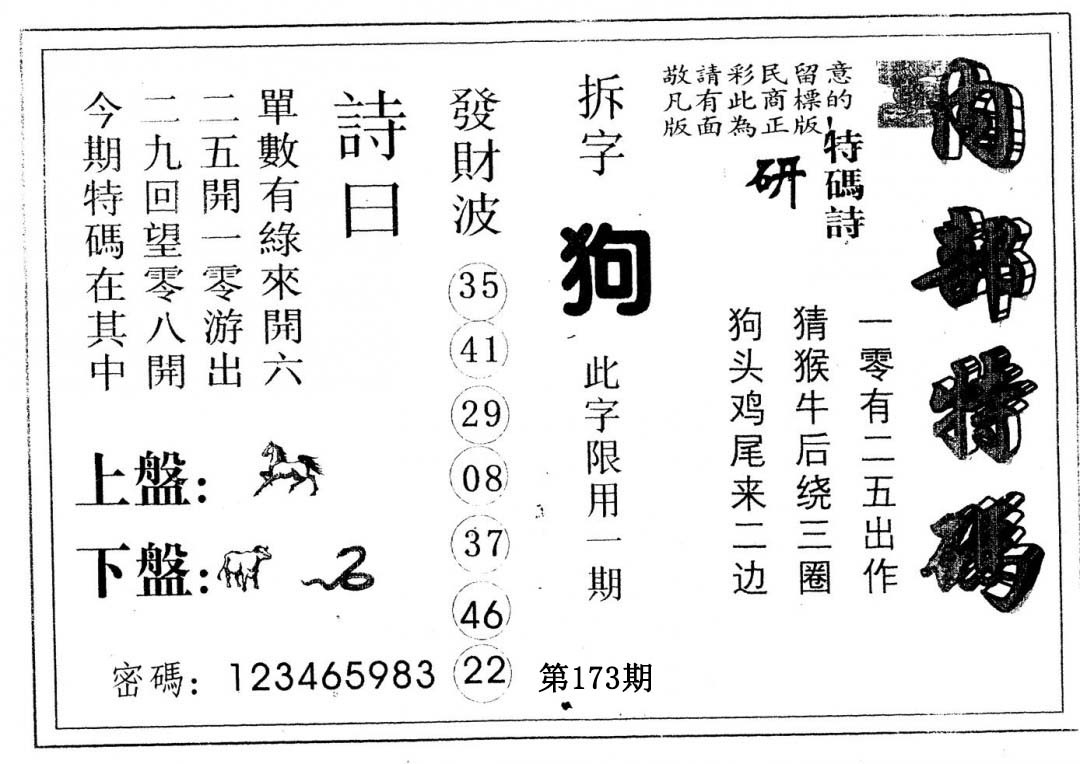 内部特碼
敬請彩民留意
凡有此商標的
版面為正版!
特碼詩
研
一零有二五出作
猜猴牛后绕三圈
狗头鸡尾来二边
拆字
狗
此字限用一期
發財波
35
41
29
08
37
46
22
詩曰
單數有綠來開六
二五開一零游出
二九回望零八開
今期特碼在其中
上盤:
下盤:
密碼: 123465983
第173期